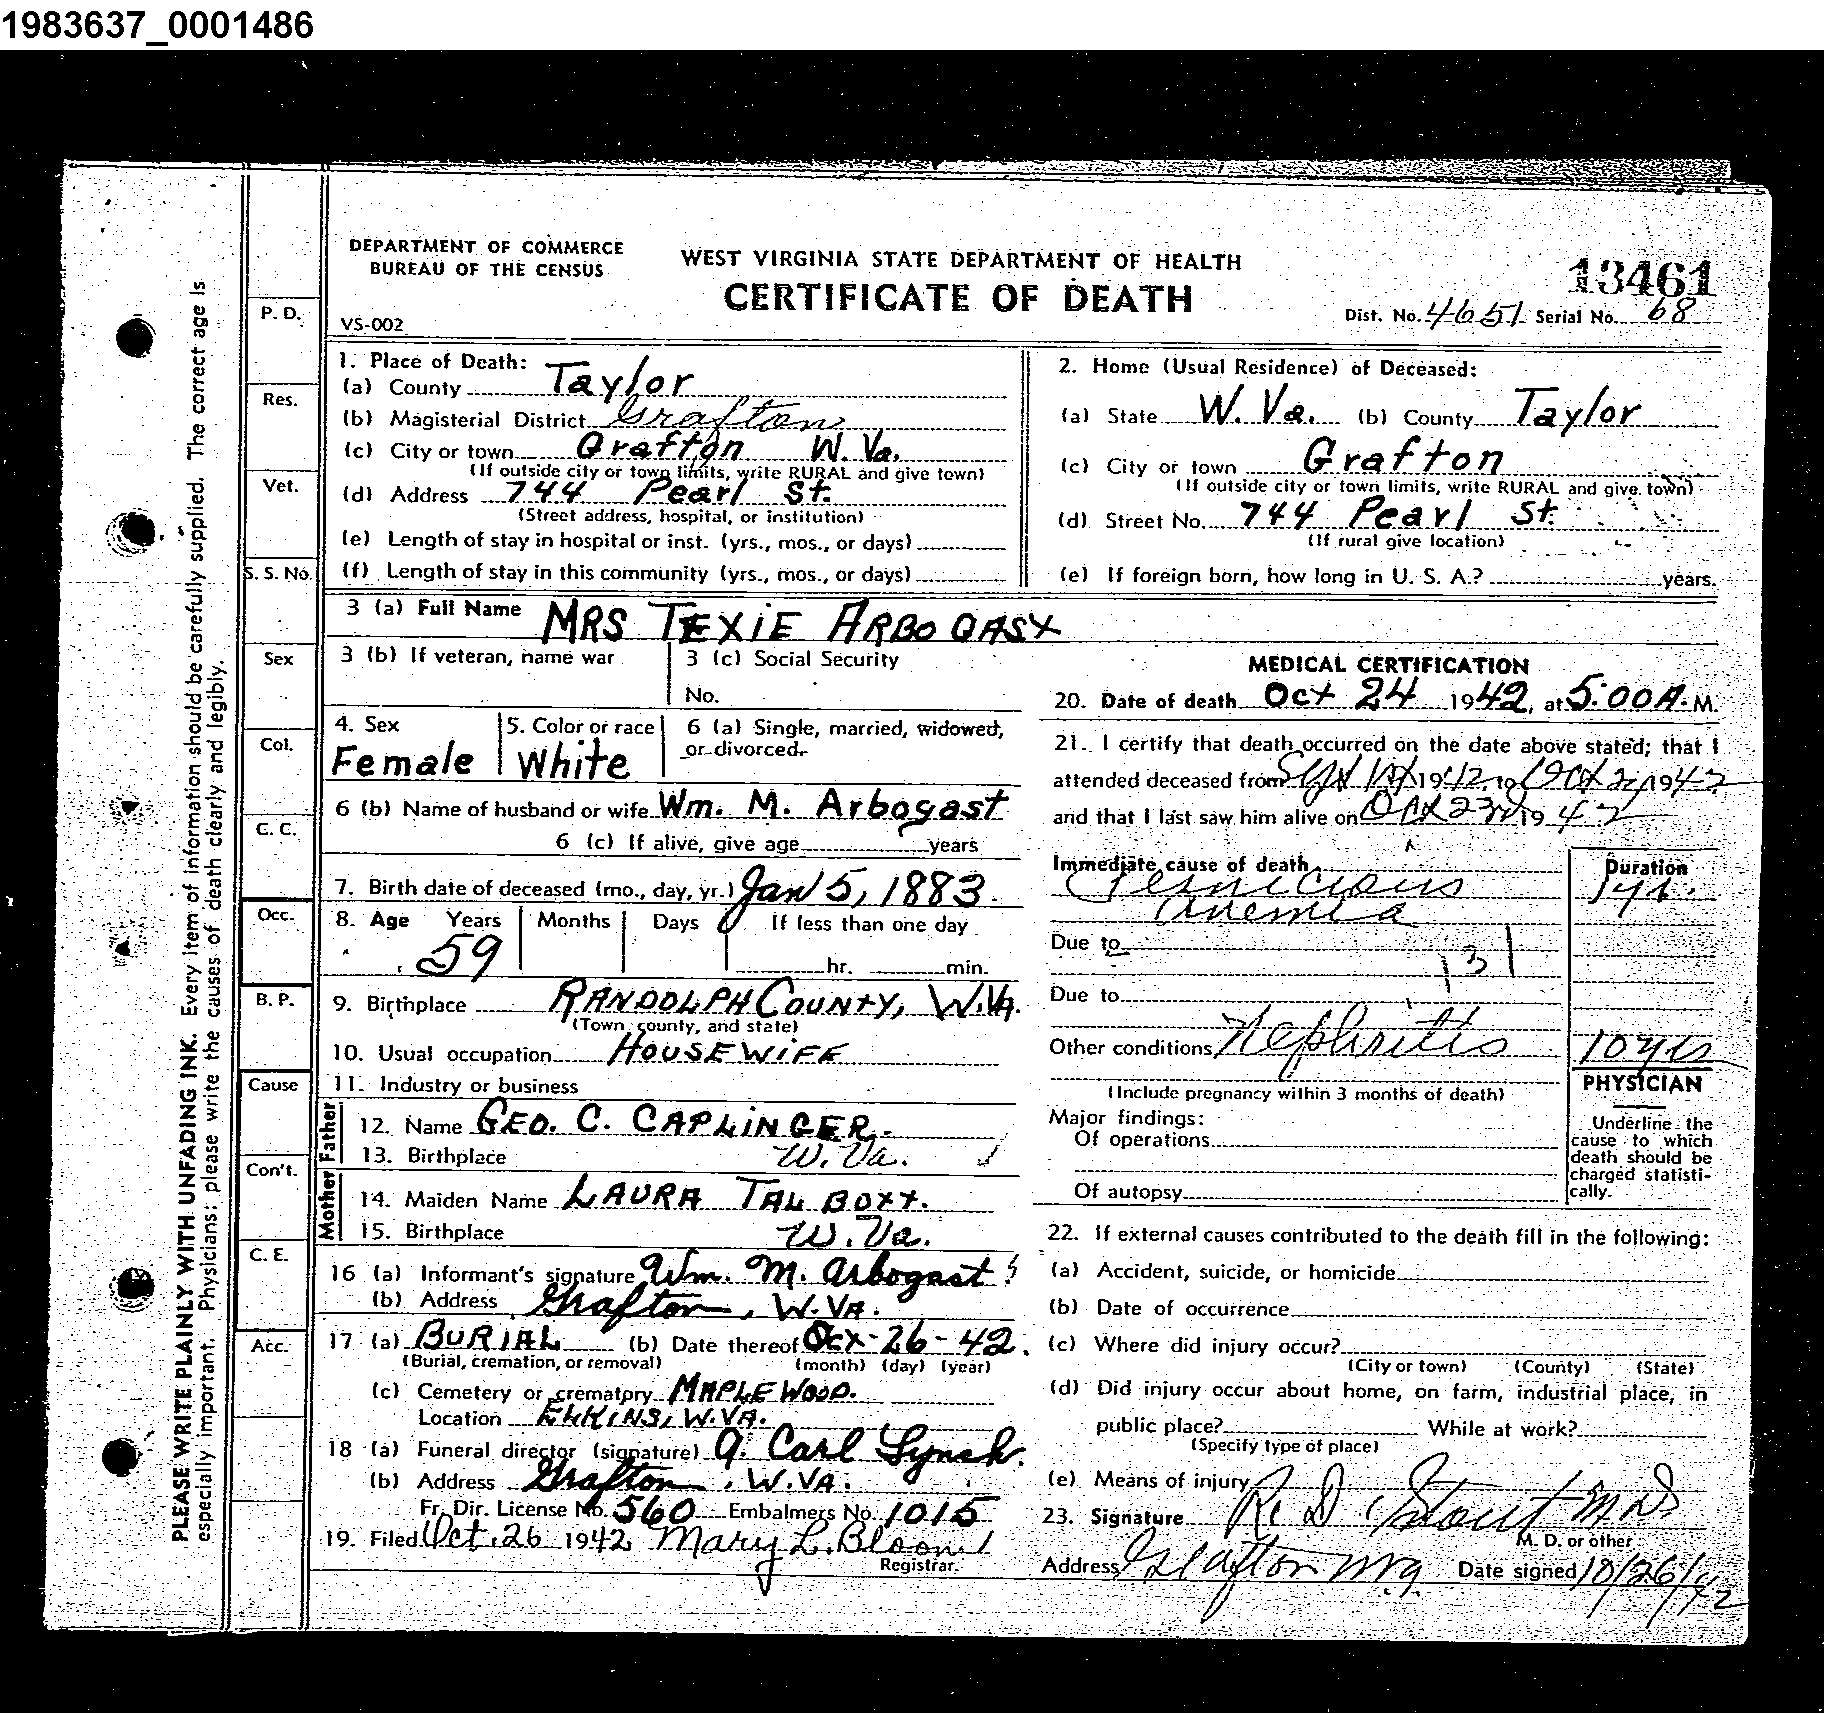 1983637_0001486
DEPARTMENT OF COMMERCE
BUREAU OF THE CENSUS
VS-002
WEST VIRGINIA STATE DEPARTMENT OF HEALTH
CERTIFICATE OF DEATH
13461
Dist. No. 4651 Serial No. 68
PLEASE WRITE PLAINLY WITH UNFADING INK. Every item of information should be carefully supplied. The correct age is
especially important. Physicians: please write the causes of death clearly and legibly.
P. D.
Res.
Vet.
S. S. No.
Sex
Col.
C. C.
Occ.
B. P.
Cause
Con't.
C. E.
Acc.
1. Place of Death:
(a) County Taylor
(b) Magisterial District Grafton
(c) City or town Grafton W. Va.
(If outside city or town limits, write RURAL and give town)
(d) Address 744 Pearl St.
(Street address, hospital, or institution)
(e) Length of stay in hospital or inst. (yrs., mos., or days)
(f) Length of stay in this community (yrs., mos., or days)
2. Home (Usual Residence) of Deceased:
(a) State W. Va. (b) County Taylor
(c) City or town Grafton
(If outside city or town limits, write RURAL and give town)
(d) Street No. 744 Pearl St.
(If rural give location)
(e) If foreign born, how long in U. S. A.? years.
3 (a) Full Name MRS TEXIE ARBOGAST
3 (b) If veteran, name war
3 (c) Social Security
No.
4. Sex
Female
5. Color or race
White
6 (a) Single, married, widowed,
or divorced
6 (b) Name of husband or wife Wm. M. Arbogast
6 (c) If alive, give age years
7. Birth date of deceased (mo., day, yr.) Jan 5, 1883
8. Age Years Months Days If less than one day
59 hr. min.
9. Birthplace RANDOLPH COUNTY, W.VA.
(Town, county, and state)
10. Usual occupation HOUSEWIFE
11. Industry or business
Father
12. Name GEO. C. CAPLINGER
13. Birthplace W. Va.
Mother
14. Maiden Name LAURA TALBOTT.
15. Birthplace W. Va.
16 (a) Informant's signature Wm. M. Arbogast
(b) Address Grafton, W.VA.
17 (a) BURIAL (b) Date thereof Oct-26-42.
(Burial, cremation, or removal) (month) (day) (year)
(c) Cemetery or crematory MAPLEWOOD.
Location ELKINS, W.VA.
18 (a) Funeral director (signature) A. Carl Lynch.
(b) Address Grafton, W.VA.
Fr. Dir. License No. 560 Embalmers No. 1015
19. Filed Oct. 26 1942 Mary L. Bloom
Registrar.
MEDICAL CERTIFICATION
20. Date of death Oct 24 1942, at 5:00 A. M.
21. I certify that death occurred on the date above stated; that I
attended deceased from 1942, to Oct 1942
and that I last saw him alive on Oct 23rd 1942
Immediate cause of death
Pernicious
Anemia
Duration
1 yr.
Due to
131
Due to
Other conditions Nephritis 10 yrs
(Include pregnancy within 3 months of death)
Major findings:
Of operations
Of autopsy
PHYSICIAN
Underline the
cause to which
death should be
charged statisti-
cally.
22. If external causes contributed to the death fill in the following:
(a) Accident, suicide, or homicide
(b) Date of occurrence
(c) Where did injury occur?
(City or town) (County) (State)
(d) Did injury occur about home, on farm, industrial place, in
public place? While at work?
(Specify type of place)
(e) Means of injury
23. Signature R. D. Stout M.D.
M. D. or other
Address Grafton W.Va. Date signed 10/26/42